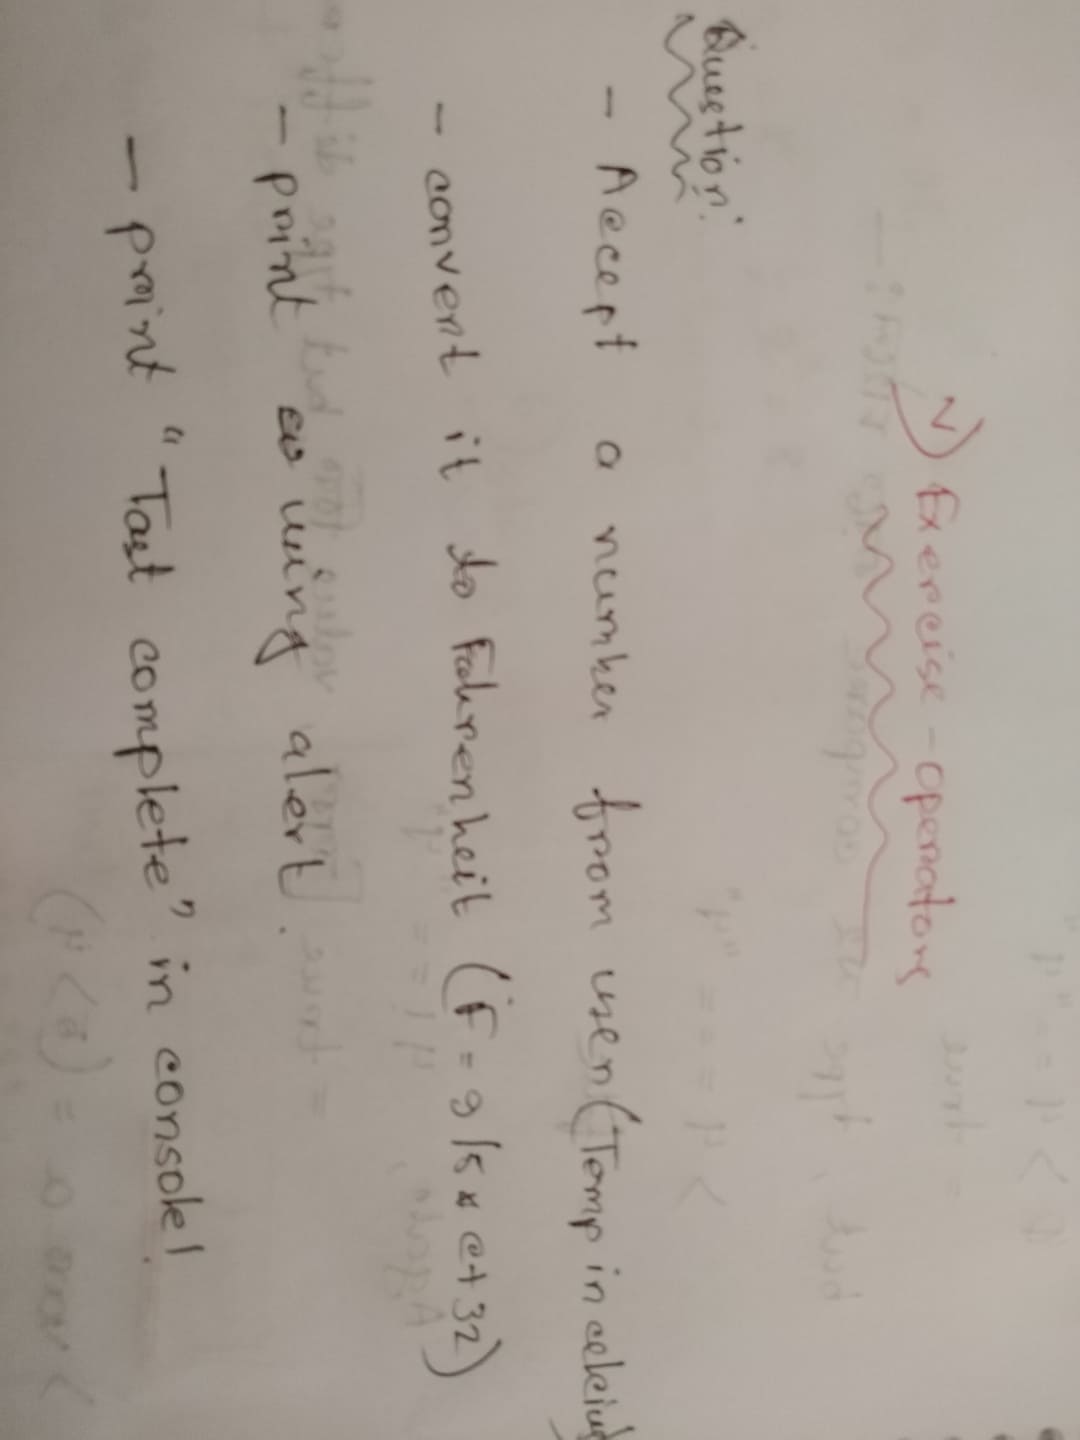 ✓) Exercise - operators
Question:
- Accept a number from user (Temp in celcius)
- convert it to Fahrenheit (F = 9/5 * c + 32)
- print using alert.
- print "Tast complete" in console!